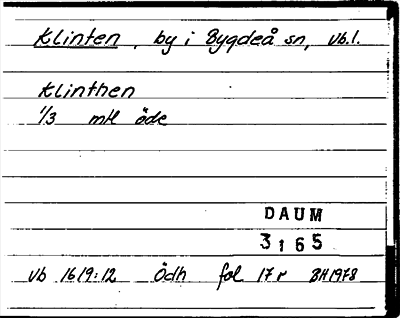 Klinten, by i Bygdeå sn, vb.l.
Klinthen
1/3 mtl öde
DAUM
3165
Vb 1619:12 Ödh fol 17r BH1978